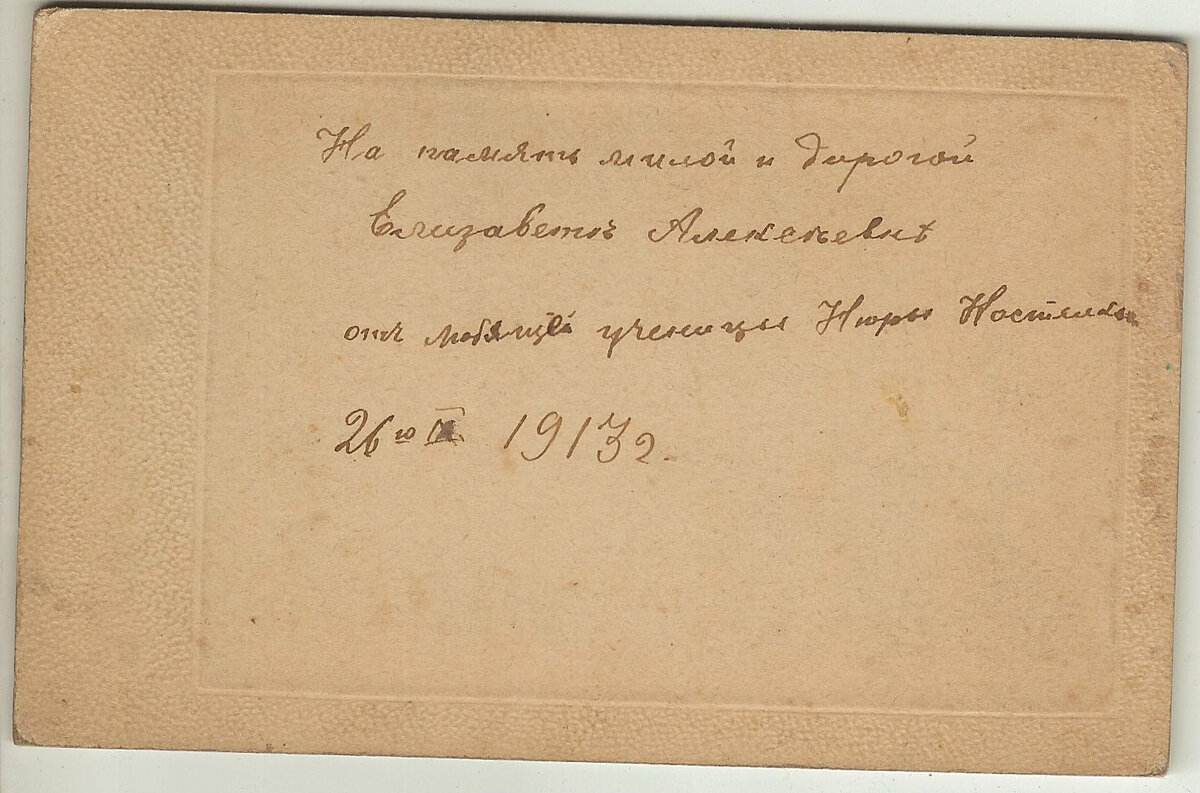 На память милой и дорогой
Елизаветѣ Алексѣевнѣ
отъ любящей ученицы Нюры
26го 1913 г.